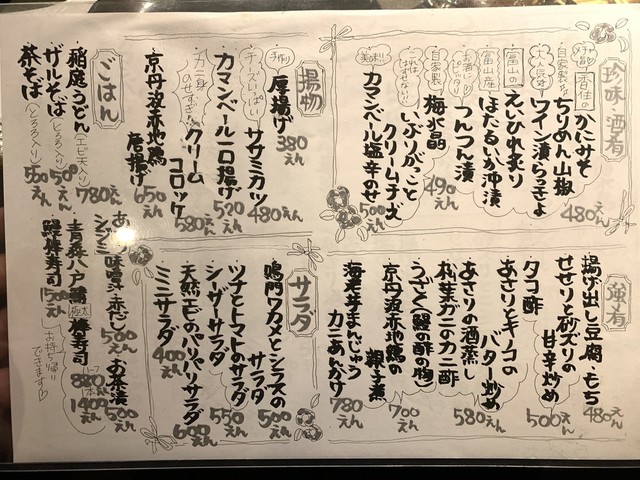 珍味・酒肴
香住のかにみそ
自家製
ちりめん山椒
480えん
大人気
ワイン漬らっきょ
富山の
えいひれ炙り
富山産
ほたるいか沖漬
お酒にぴったり
つんつん漬
490えん
自家製
梅水晶
これははずせない!!
いぶりがっことクリームチーズ
美味!!
カマンベール塩辛のせ
500えん
揚物
手作り
厚揚げ
380えん
チーズいっぱい
ササミカツ
480えん
カマンベール一口揚げ
520えん
カニ身のせすぎ
クリームコロッケ
580えん
京丹波赤地鶏唐揚げ
650えん
ごはん
稲庭うどん
(エビ天入り)
780えん
ザルそば
(とろろ入り)
500えん
茶そば
(とろろ入り)
550えん
強肴
揚げ出し豆腐・もち
480えん
せせりと砂ズリの甘辛炒め
500えん
タコ酢
あさりとキノコのバター炒め
580えん
あさりの酒蒸し
松葉ガニのカニ酢
うざく(鰻の酢の物)
700えん
京丹波赤地鶏の
海老芋まんじゅうカニあんかけ
780えん
サラダ
鳴門ワカメとシラスのサラダ
500えん
ツナとトマトのサラダ
550えん
シーザーサラダ
天然エビのパリパリサラダ
600えん
ミニサラダ
400えん
味噌汁
赤だし
500えん
お茶漬
500えん
青森八戸鯖棒寿司
880えん
1400えん
棒寿司
1500えん
お持ち帰りできます♡